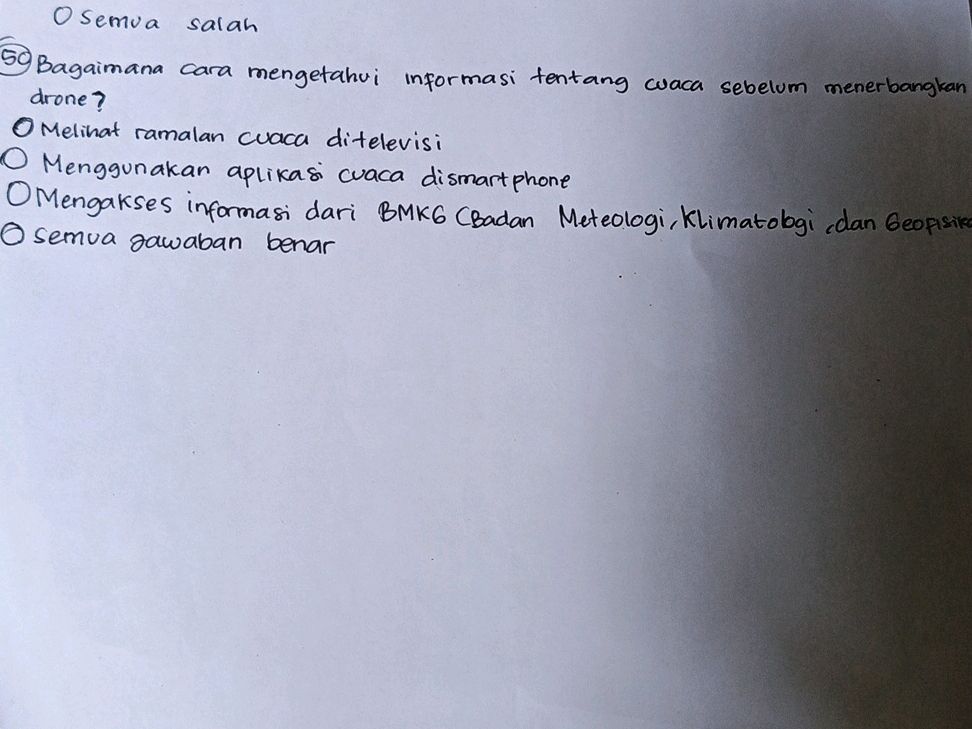 O Semua salah
50 Bagaimana cara mengetahui informasi tentang cuaca sebelum menerbangkan
drone?
O Melihat ramalan cuaca ditelevisi
O Menggunakan aplikasi cuaca dismartphone
O Mengakses informasi dari BMKG (Badan Meteologi, Klimatologi, dan Geofisik
O Semua jawaban benar